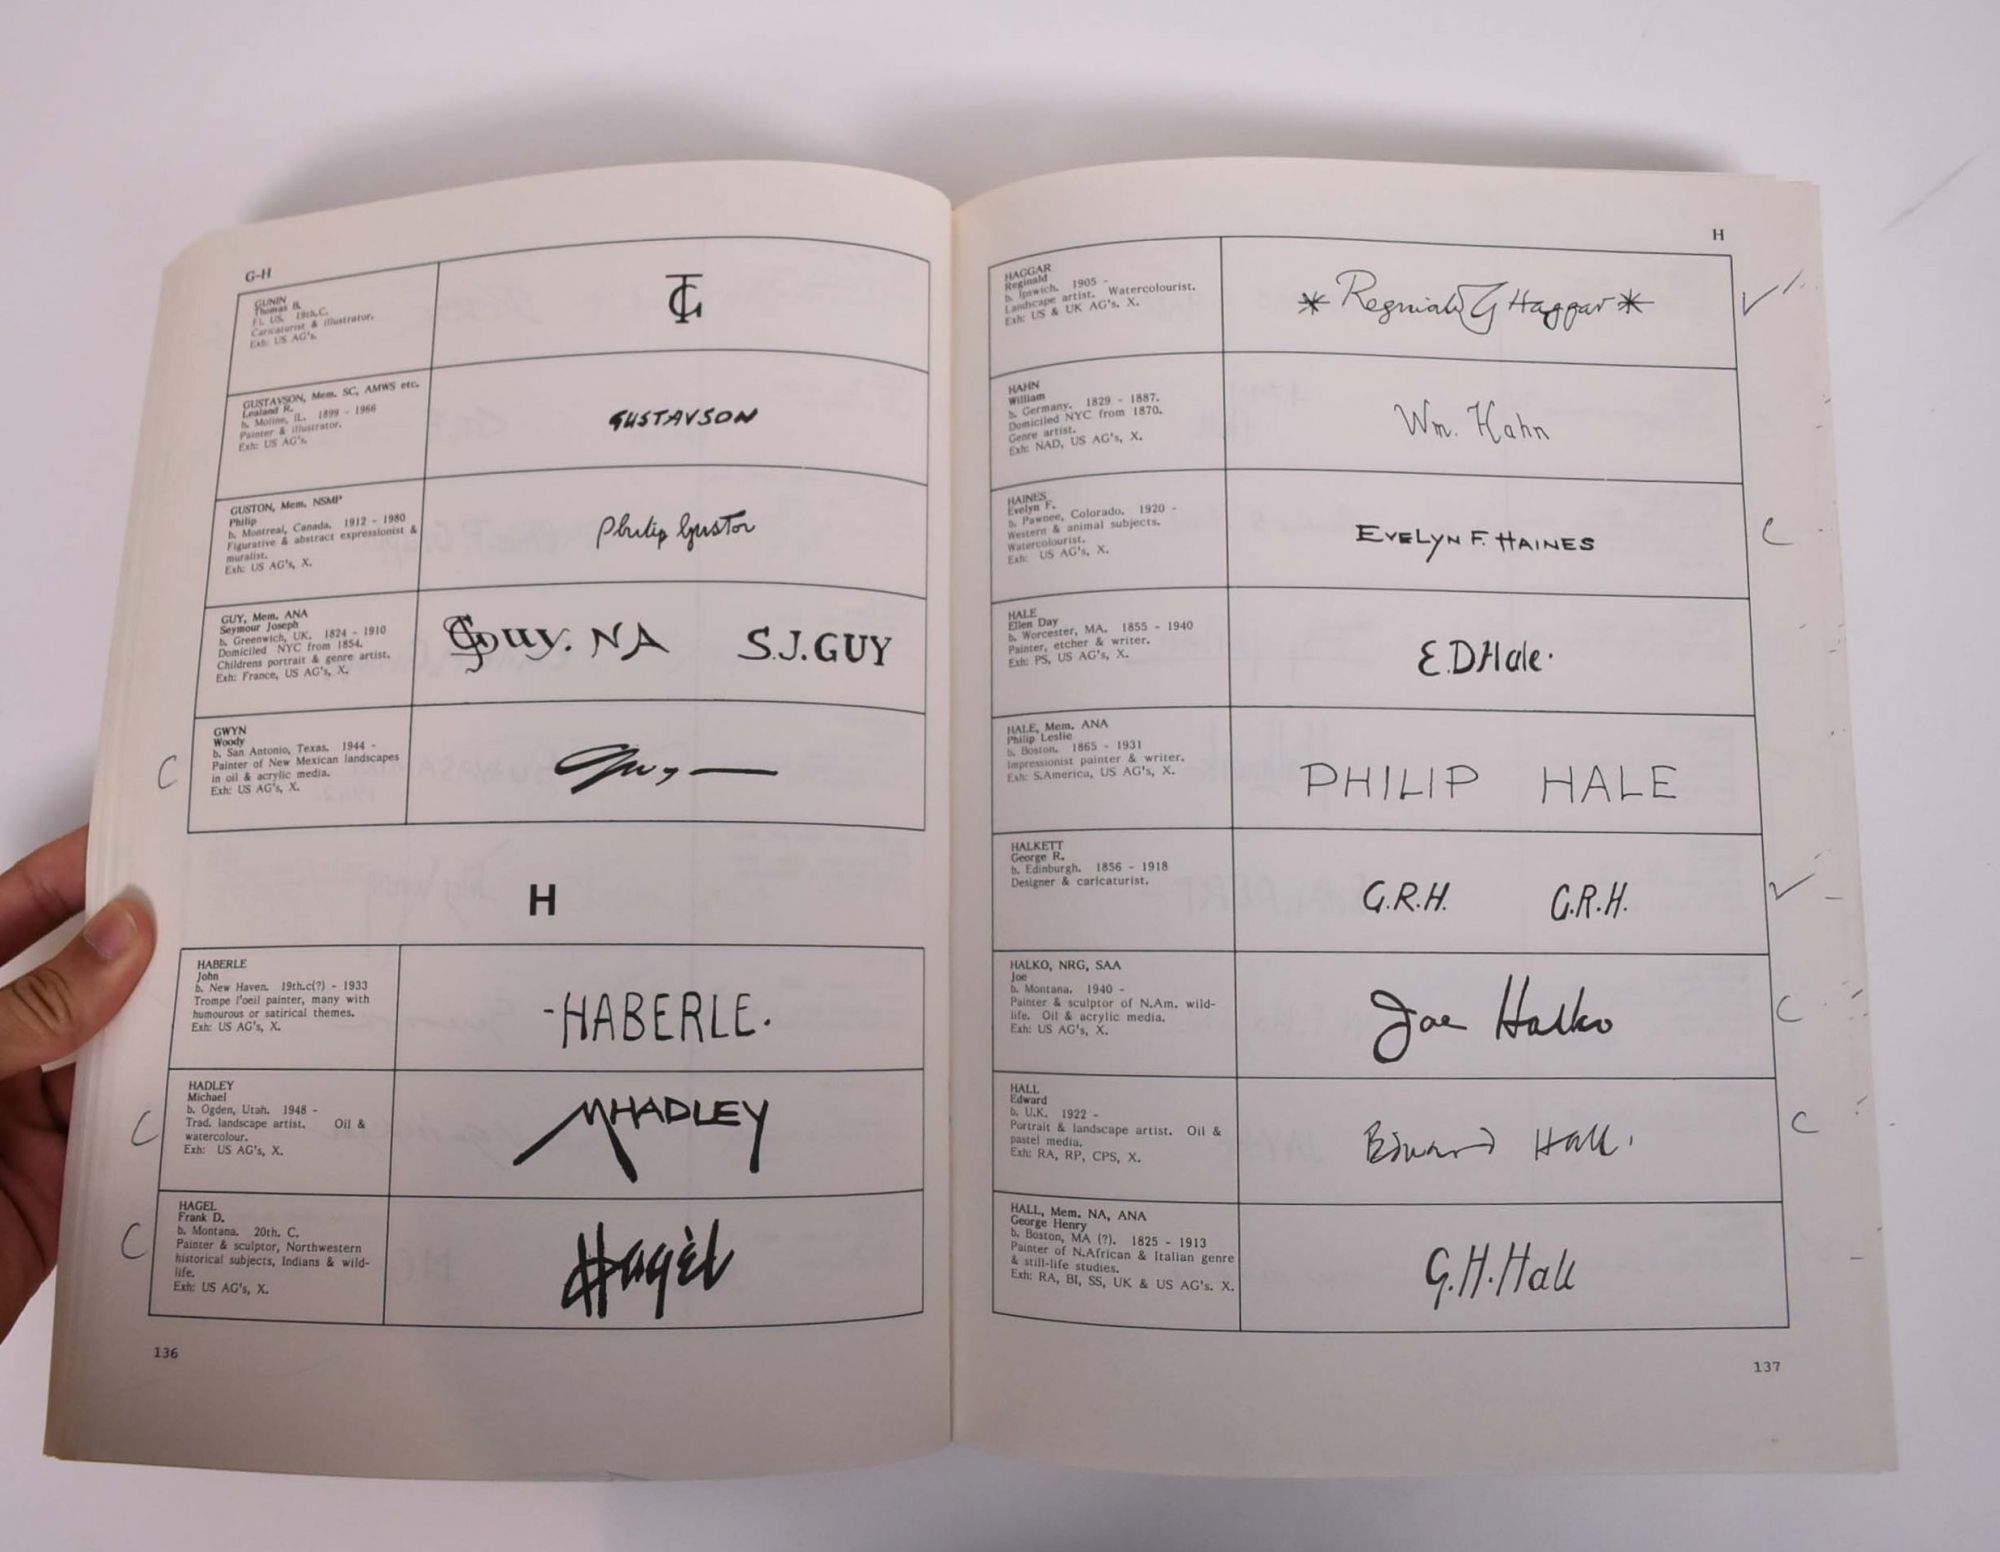 G-H
GUNIN
Thomas B.
Fl. US. 19th.C.
Caricaturist & illustrator.
Exh: US AG's.
TG
GUSTAVSON, Mem. SC, AMWS etc.
Lealand R.
b. Moline, IL. 1899 - 1966
Painter & illustrator.
Exh: US AG's.
GUSTAVSON
GUSTON, Mem. NSMP
Philip
b. Montreal, Canada. 1912 - 1980
Figurative & abstract expressionist &
muralist.
Exh: US AG's, X.
Philip Guston
GUY, Mem. ANA
Seymour Joseph
b. Greenwich, UK. 1824 - 1910
Domiciled NYC from 1854.
Childrens portrait & genre artist.
Exh: France, US AG's, X.
SJGuy. NA S.J.GUY
C
GWYN
Woody
b. San Antonio, Texas. 1944 -
Painter of New Mexican landscapes
in oil & acrylic media.
Exh: US AG's, X.
H
HABERLE
John
b. New Haven. 19th.c(?) - 1933
Trompe l'oeil painter, many with
humourous or satirical themes.
Exh: US AG's, X.
-HABERLE.
C
HADLEY
Michael
b. Ogden, Utah. 1948 -
Trad. landscape artist. Oil &
watercolour.
Exh: US AG's, X.
MHADLEY
C
HAGEL
Frank D.
b. Montana. 20th. C.
Painter & sculptor, Northwestern
historical subjects, Indians & wild-
life.
Exh: US AG's, X.
Hagel
136
H
HAGGAR
Reginald
b. Ipswich. 1905 -
Landscape artist. Watercolourist.
Exh: US & UK AG's, X.
* Reginald G Haggar *
HAHN
William
b. Germany. 1829 - 1887.
Domiciled NYC from 1870.
Genre artist.
Exh: NAD, US AG's, X.
Wm. Hahn
HAINES
Evelyn F.
b. Pawnee, Colorado. 1920 -
Western & animal subjects.
Watercolourist.
Exh: US AG's, X.
EVELYN F. HAINES
C
HALE
Ellen Day
b. Worcester, MA. 1855 - 1940
Painter, etcher & writer.
Exh: PS, US AG's, X.
E.DHale.
HALE, Mem. ANA
Philip Leslie
b. Boston. 1865 - 1931
Impressionist painter & writer.
Exh: S.America, US AG's, X.
PHILIP HALE
HALKETT
George R.
b. Edinburgh. 1856 - 1918
Designer & caricaturist.
G.R.H. G.R.H.
HALKO, NRG, SAA
Joe
b. Montana. 1940 -
Painter & sculptor of N.Am. wild-
life. Oil & acrylic media.
Exh: US AG's, X.
Joe Halko
C
HALL
Edward
b. U.K. 1922 -
Portrait & landscape artist. Oil &
pastel media.
Exh: RA, RP, CPS, X.
Edward Hall.
C
HALL, Mem. NA, ANA
George Henry
b. Boston, MA (?). 1825 - 1913
Painter of N.African & Italian genre
& still-life studies.
Exh: RA, BI, SS, UK & US AG's. X.
G.H.Hall
137